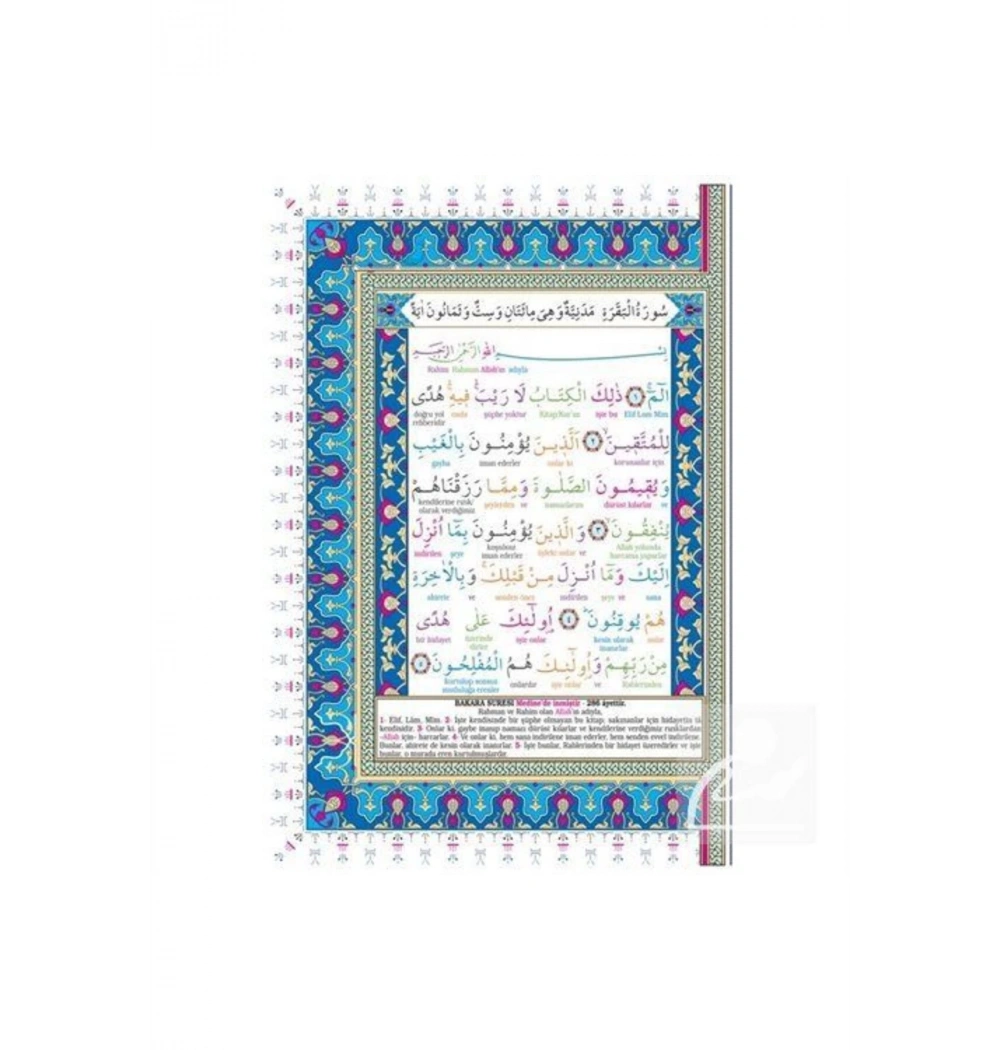 سُورَةُ الْبَقَرَةِ مَدَنِيَّةٌ وَهِيَ مِائَتَانِ وَسِتٌّ وَثَمَانُونَ اٰيَةً
بِسْمِ اللهِ الرَّحْمٰنِ الرَّحِيمِ
Rahim Rahman Allah'ın adıyla
الٓمٓۚ ﴿١﴾ ذٰلِكَ الْكِتَابُ لَا رَيْبَۚ فِيهِۚ هُدًى
doğru yol onda şüphe yoktur Kitap/Kur'an işte bu Elif Lam Mim
edinendir
لِلْمُتَّقِينَۙ ﴿٢﴾ اَلَّذِينَ يُؤْمِنُونَ بِالْغَيْبِ
gayba iman ederler onlar ki korunanlar için
وَيُقِيمُونَ الصَّلٰوةَ وَمِمَّا رَزَقْنَاهُمْ
kendilerine rızık/ şeylerden ve namazlarını dürüst kılarlar ve
olarak verdiğimiz
يُنْفِقُونَۙ ﴿٣﴾ وَالَّذِينَ يُؤْمِنُونَ بِمَٓا اُنْزِلَ
indirilen şeye koşulsuz iman ederler öyleki onlar ve Allah yolunda
harcama yaparlar
اِلَيْكَ وَمَٓا اُنْزِلَ مِنْ قَبْلِكَۚ وَبِالْاٰخِرَةِ
ahirete ve senden önce indirilen şeye ve sana
هُمْ يُوقِنُونَۜ ﴿٤﴾ اُولٰٓئِكَ عَلٰى هُدًى
bir hidayet üzerinde işte onlar kesin olarak onlar
dirler inanırlar
مِنْ رَبِّهِمْ وَاُولٰٓئِكَ هُمُ الْمُفْلِحُونَ ﴿٥﴾
kurtulup sonsuz onlardır işte onlar ve Rablerinden
mutluluğa erenler
BAKARA SURESİ Medine'de inmiştir - 286 âyettir.
Rahman ve Rahim olan Allah'ın adıyla,
1- Elif, Lâm, Mîm. 2- İşte kendisinde bir şüphe olmayan bu kitap, sakınanlar için hidayetin tâ
kendisidir. 3- Onlar ki, gaybe inanıp namazı dürüst kılarlar ve kendilerine verdiğimiz rızıklardan
-Allah için- harcarlar. 4- Ve onlar ki, hem sana indirilene iman ederler, hem senden evvel indirilene.
Bunlar, ahirete de kesin olarak inanırlar. 5- İşte bunlar, Rablerinden bir hidayet üzerindirler ve işte
bunlar, o murada eren kurtulmuşlardır.